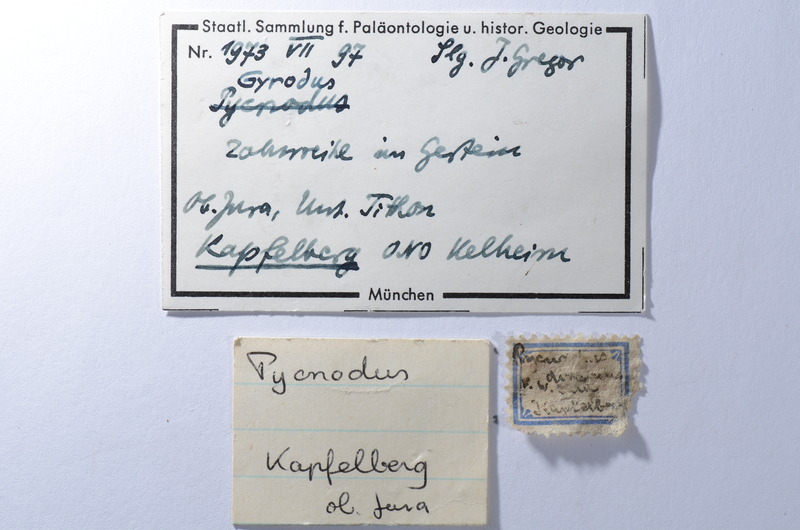 Staatl. Sammlung f. Paläontologie u. histor. Geologie
Nr. 1973 VII 97 Slg. J. Gregor
Gyrodus
Pycnodus
Zahnreihe im Gestein
Ob. Jura, Unt. Tithon
Kapfelberg ONO Kelheim
München
Pycnodus
Kapfelberg
ob. Jura